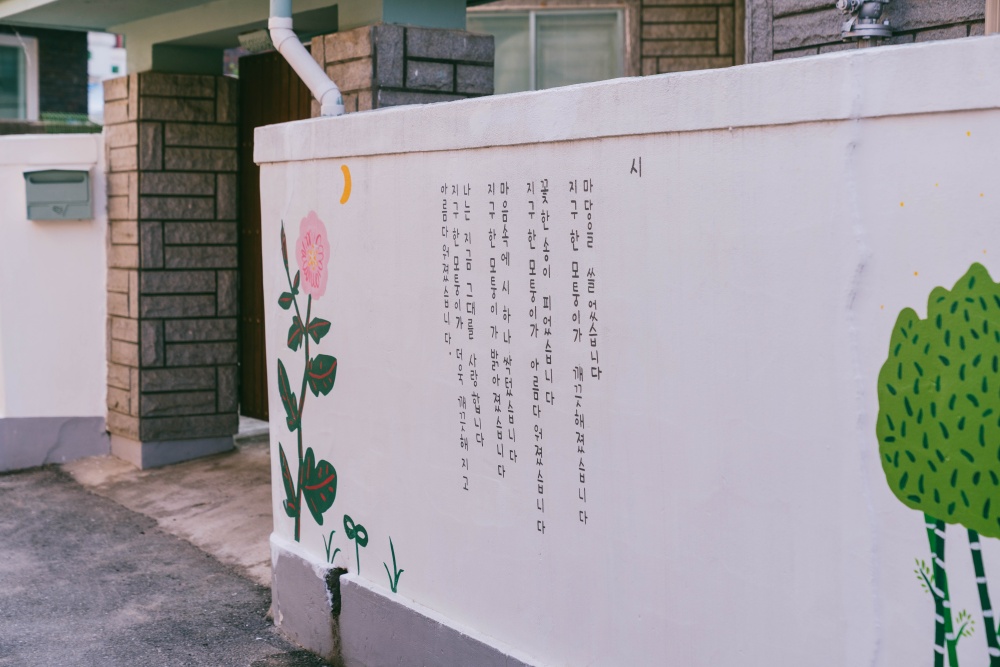 시
마당을 쓸었습니다
지구 한 모퉁이가 깨끗해졌습니다
꽃 한 송이 피었습니다
지구 한 모퉁이가 아름다워졌습니다
마음속에 시 하나 싹텄습니다
지구 한 모퉁이가 밝아졌습니다
나는 지금 그대를 사랑합니다
지구 한 모퉁이가 더욱 깨끗해지고
아름다워졌습니다.